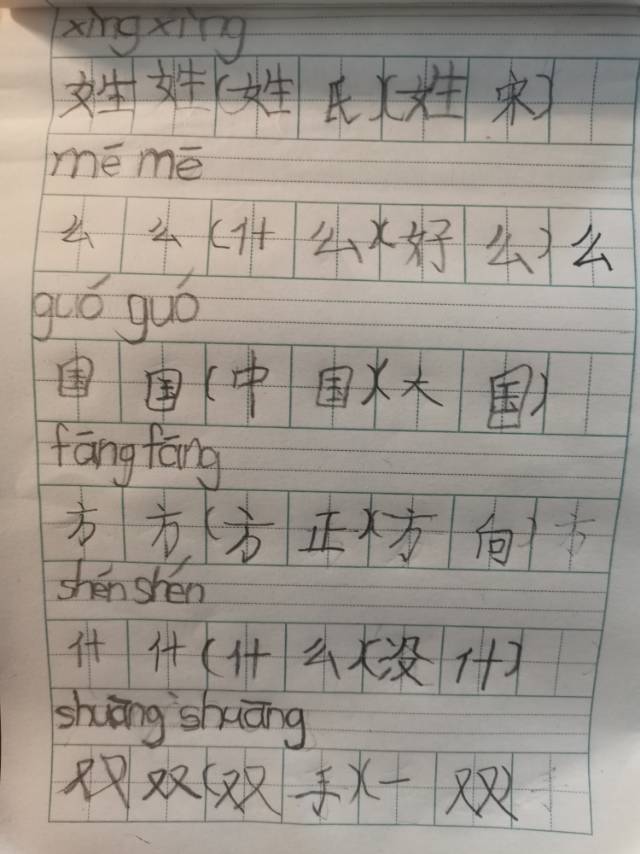 xìng xìng
姓 姓 (姓 氏)(姓 宋)
mē mē
么 么 (什 么)(好 么) 么
guó guó
国 国 (中 国)(大 国)
fāng fāng
方 方 (方 正)(方 向) 方
shén shén
什 什 (什 么)(没 什)
shuāng shuāng
双 双 (双 手)(一 双)